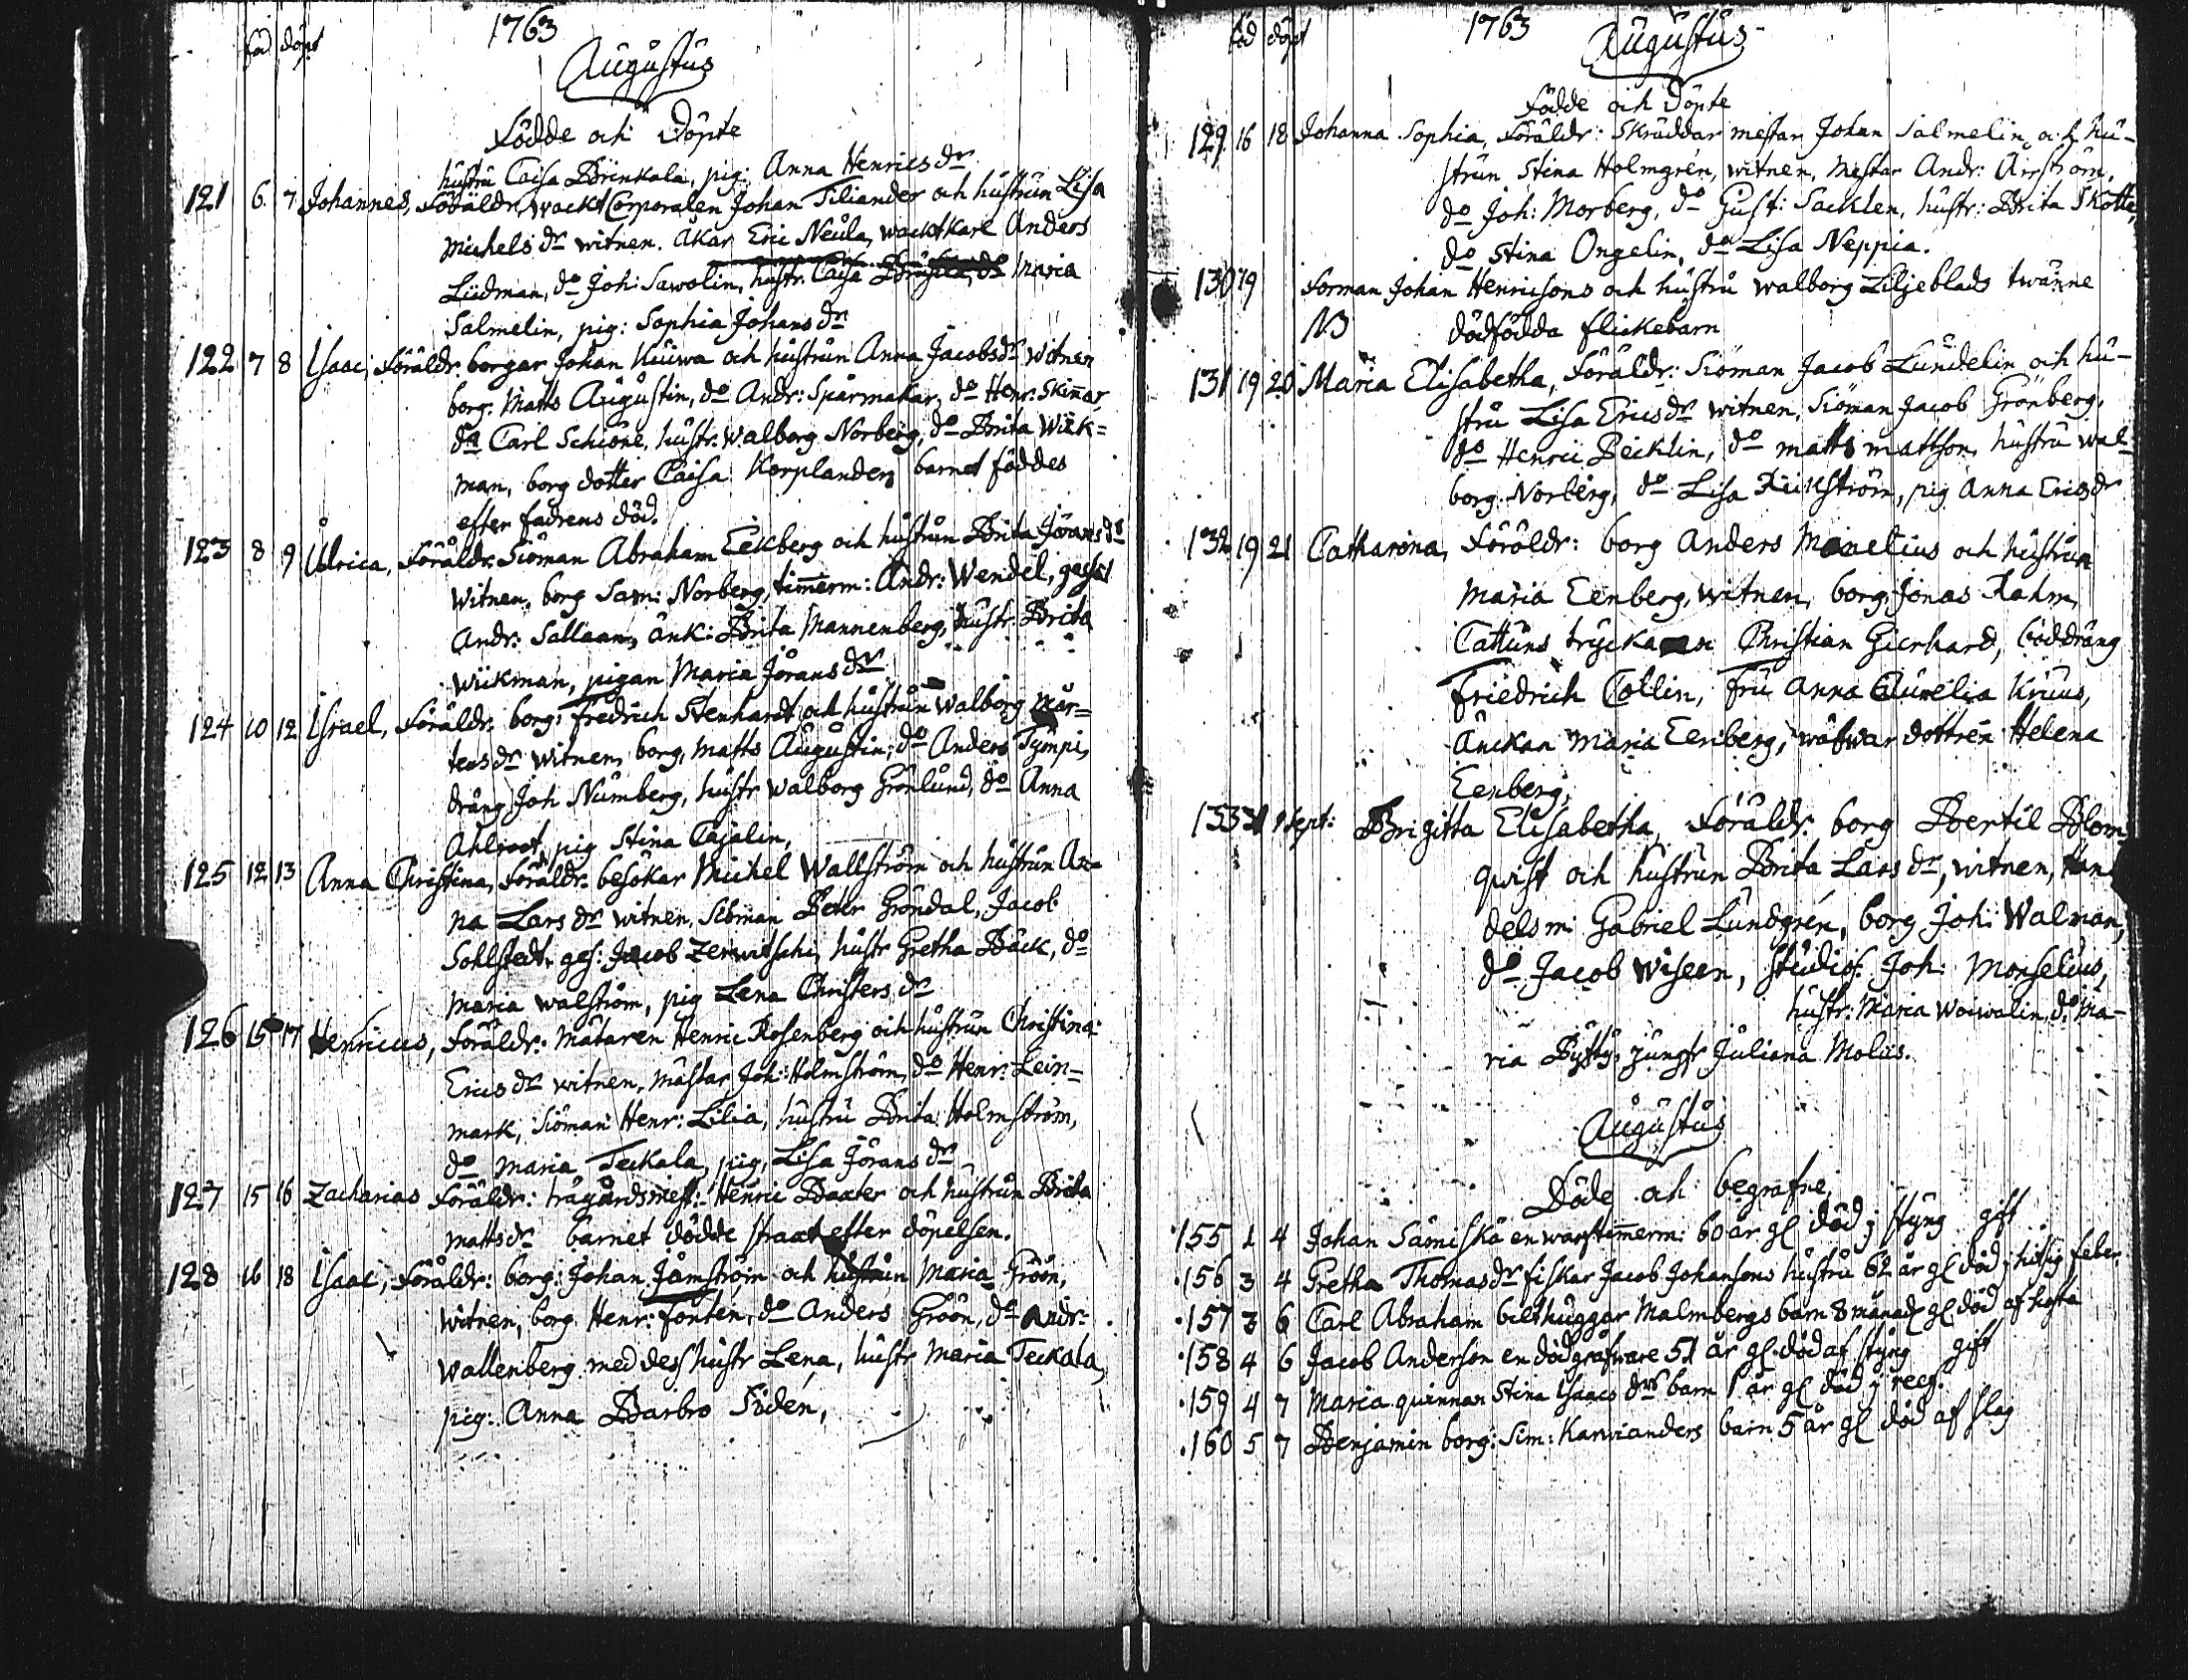 1763
föd döpt
Augustus
Födde och Döpte
hustru Caisa Brinkala, pig: Anna Henricsdr
121 6 7 Johannes, Föräldr, wackt Corporalen Johan Tiliander och hustrun Lisa
Michelsdr witnen. åkar Eric Neula, wacktkarl Anders
Ludman, do Joh: Sawolin, hustr. Caisa do Maria
Salmelin, pig: Sophia Johansdr
122 7 8 Isaac, Föräldr. borgar Johan Kuiwa och hustrun Anna Jacobsdr witnen
borg: Matts Augustin, do Andr: Spårmakar, do Henr: Skinnar,
do Carl Schiöne, hustr. Walborg Norberg, do Brita Wiek=
man, borg dotter Caisa Korplander, barnet föddes
efter fadrens död.
123 8 9 Ulrica, Föräldr. Siöman Abraham Eekberg och hustrun Brita Jöransdr
Witnen, borg Sam: Norberg, timmerm: Andr: Wendel, gesäl
Andr: Sallaan, änk: Brita Mannenberg, hustr. Brita
Wiikman, pigan Maria Jöransdr
124 10 12 Israel, Föräldr: borg: Fredrich Stenhardt och hustrun Walborg Mår=
tensdr witnen, borg, Matts Augustin, do Anders Tympi,
dräng Joh Numberg, hustr Walborg Grönlund, do Anna
Ahlroot, pig Stina Cajalin,
125 12 13 Anna Christina, Föräldr. besökar Michel Wallström och hustrun An=
na Larsdr witnen, Siöman Peter Gröndal, Jacob
Sohlstedt, ges: Jacob Zerwitschi, hustr Gretha Bäck, do
Maria Walström, pig Lena Christersdr
126 15 17 Henricus, Föräldr: Mätaren Henric Rosenberg och hustrun Christina
Ericsdr witnen, Mästar Joh: Holmström, do Henr: Lein=
mark, Siöman Henr: Lilia, hustru Brita Holmström,
do Maria Teckala, pig, Lisa Jöransdr
127 15 16 Zacharias Föräldr: trägårdsmest: Henric Baxter och hustrun Brita
Mattsdr barnet dödde straxt efter döpelsen.
128 16 18 Isaac, Föräldr: borg: Johan Jämström och hustrun Maria Gröön,
Witnen, borg Henr: Fonten, do Anders Gröön, do Andr:
Wallenberg med dess hustr Lena, hustr Maria Teckala,
pig: Anna Barbro Siden,
1763
föd döpt
Augustus
Födde och Döpte
129 16 18 Johanna Sophia, Föräldr: Skräddar mestar Johan Salmelin och hu-
strun Stina Holmgrén, witnen, Mestar Andr: Arrström,
do Joh: Morberg, do Gust: Sacklen, hustr: Brita Skotte,
do Stina Ongelin, do Lisa Neppia.
130 19 Forman Johan Henricsons och hustru Walborg Liljeblads twänne
NB dödfödda flickebarn
131 19 20 Maria Elisabetha, Föräldr: Siöman Jacob Lundelin och hu-
stru Lisa Ericsdr witnen, Siöman Jacob Grönberg,
do Henric Pecklin, do Matts Mattson, hustru Wal-
borg Norberg, do Lisa Reinström, pig Anna Ericsdr
132 19 21 Catharina, Föräldr: borg Anders Manelius och hustrun
Maria Eenberg, witnen, borg: Jonas Rahm,
Cattuns tryckaren Christian Gierhard, boddräng
Friedrich Collin, Fru Anna Aurelia Kruus,
Änckan Maria Eenberg, wäfwar dottren Helena
Eenberg,
133 31 1 Sept: Brigitta Elisabetha, Föräldr. borg Bertil Blom
qwist och hustrun Brita Larsdr, witnen, Han
delsm: Gabriel Lundgrén, borg Joh: Walman,
do Jacob Wiseen, Studios: Joh: Monselius,
hustr: Maria Woiwalin, do Ma-
ria Pytty, jungfr Juliana Molus.
Augustus
Döde och begrafne
155 1 4 Johan Sämiskä en warftimmerm: 60 år gl död i styng gift
156 3 4 Gretha Thomasdr fiskar Jacob Johansons hustru 62 år gl död i hitsig feber
157 3 6 Carl Abraham bilthuggar Malmbergs barn 8 månadr gl död af hosta
158 4 6 Jacob Anderson en dödgräfware 51 år gl död af styng gift
159 4 7 Maria quinnan Stina Isaacsdrs barn 1 år gl död i reeg.
160 5 7 Benjamin borg: Sim: Karwianders barn 5 år gl död af slag